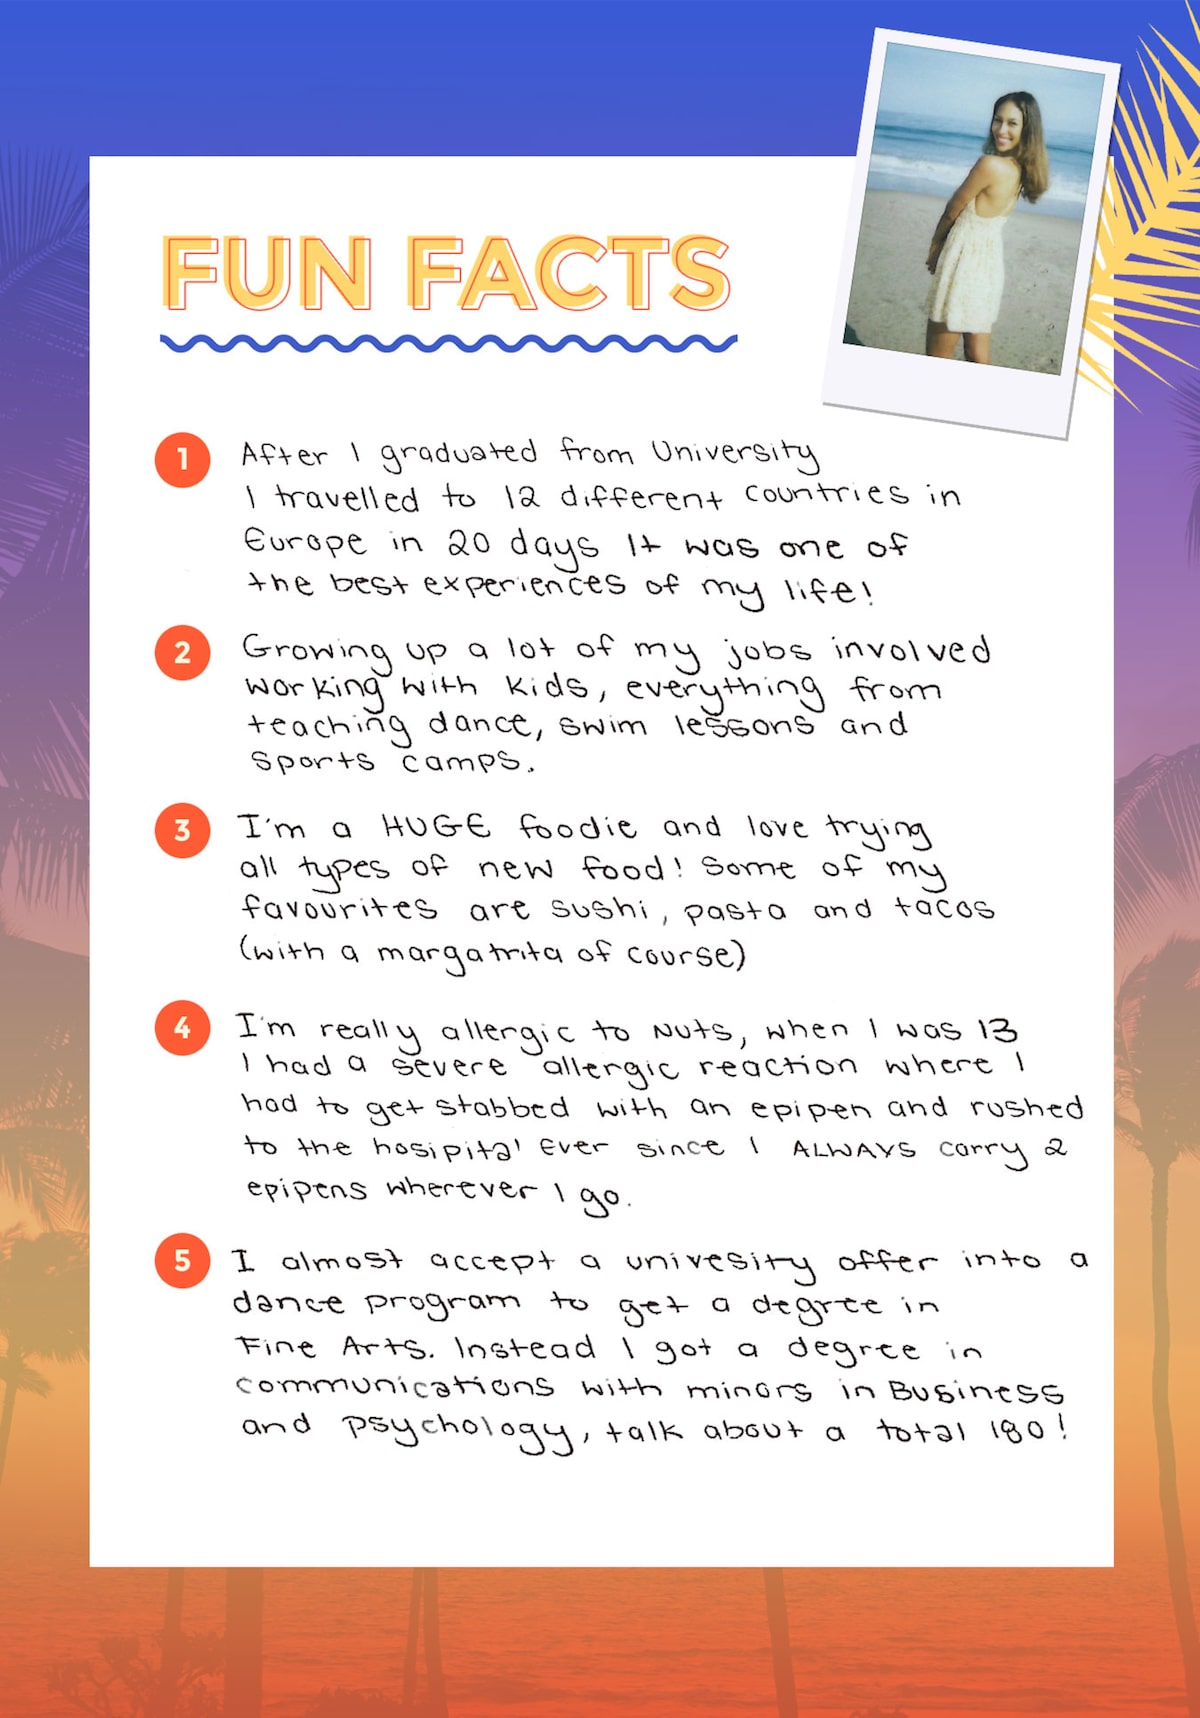 FUN FACTS
1 After I graduated from University
I travelled to 12 different countries in
Europe in 20 days It was one of
the best experiences of my life!
2 Growing up a lot of my jobs involved
working with kids, everything from
teaching dance, swim lessons and
sports camps.
3 I'm a HUGE foodie and love trying
all types of new food! Some of my
favourites are sushi, pasta and tacos
(with a margatrita of course)
4 I'm really allergic to Nuts, when I was 13
I had a severe allergic reaction where I
had to get stabbed with an epipen and rushed
to the hosipital Ever since I ALWAYS carry 2
epipens wherever I go.
5 I almost accept a univesity offer into a
dance program to get a degree in
Fine Arts. Instead I got a degree in
communications with minors in Business
and psychology, talk about a total 180!